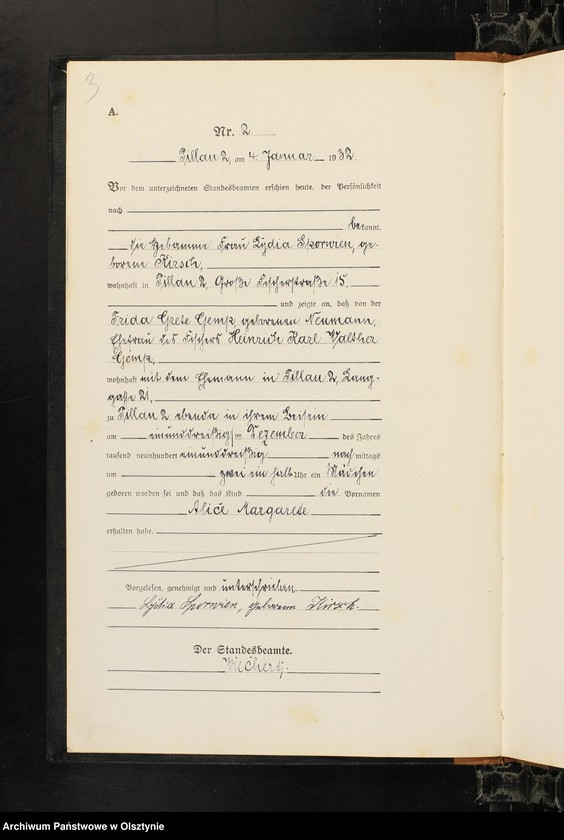 3
A.
Nr. 2
Pillau 2, am 4. Januar 1932
Vor dem unterzeichneten Standesbeamten erschien heute, der Persönlichkeit
nach
bekannt,
die Hebamme Frau Lydia Sporwien, ge-
borene Kirsch,
wohnhaft in Pillau 2, Große Fischerstraße 15,
und zeigte an, daß von der
Frida Grete Gemß, geborenen Neumann,
Ehefrau des Fischers Heinrich Karl Walther
Gemß,
wohnhaft mit dem Ehemann in Pillau 2, Lang-
gasse 21,
zu Pillau 2 ebenda in ihrem Beisein
am einunddreißigsten Dezember des Jahres
tausend neunhundert einunddreißig nachmittags
um zwei ein halb Uhr ein Mädchen
geboren worden sei und daß das Kind die Vornamen
Alice Margarete
erhalten habe.
Vorgelesen, genehmigt und unterschrieben
Lydia Sporwien, geborene Kirsch.
Der Standesbeamte.
Archiwum Państwowe w Olsztynie